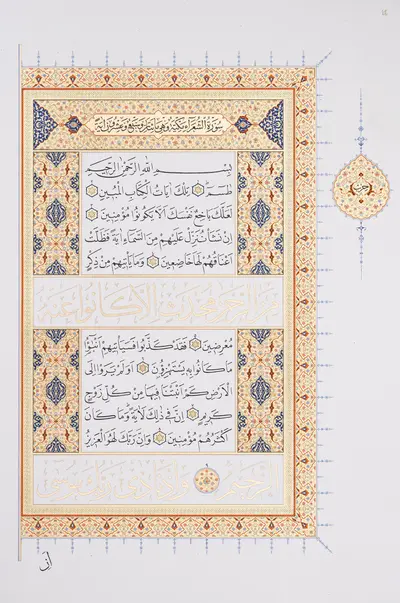 سُورَةُ الشُّعَرَاءِ مَكِّيَّةٌ وَهِيَ مِائَتَانِ وَسَبْعٌ وَعِشْرُونَ آيَةً
بِسْمِ اللهِ الرَّحْمٰنِ الرَّحِيمِ
طسم تِلْكَ آيَاتُ الْكِتَابِ الْمُبِينِ
لَعَلَّكَ بَاخِعٌ نَفْسَكَ اَلَّا يَكُونُوا مُؤْمِنِينَ
اِنْ نَشَأْ نُنَزِّلْ عَلَيْهِمْ مِنَ السَّمَاءِ اٰيَةً فَظَلَّتْ
اَعْنَاقُهُمْ لَهَا خَاضِعِينَ وَمَا يَأْتِيهِمْ مِنْ ذِكْرٍ
مِنَ الرَّحْمٰنِ مُحْدَثٍ اِلَّا كَانُوا عَنْهُ
مُعْرِضِينَ فَقَدْ كَذَّبُوا فَسَيَأْتِيهِمْ اَنْبَاءُ
مَا كَانُوا بِهِ يَسْتَهْزِؤُنَ اَوَلَمْ يَرَوْا اِلَى
الْاَرْضِ كَمْ اَنْبَتْنَا فِيهَا مِنْ كُلِّ زَوْجٍ
كَرِيمٍ اِنَّ فِي ذٰلِكَ لَاٰيَةً وَمَا كَانَ
اَكْثَرُهُمْ مُؤْمِنِينَ وَاِنَّ رَبَّكَ لَهُوَ الْعَزِيزُ
الرَّحِيمُ وَاِذْ نَادٰى رَبُّكَ مُوسٰى
حزب
اَنِ